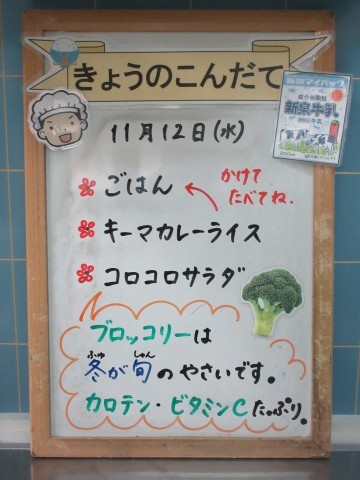 きょうのこんだて
11月12日(水)
ごはん
かけて
たべてね。
キーマカレーライス
コロコロサラダ
ブロッコリーは
冬が旬のやさいです。
ふゆ しゅん
カロテン・ビタミンCたっぷり。
新泉牛乳